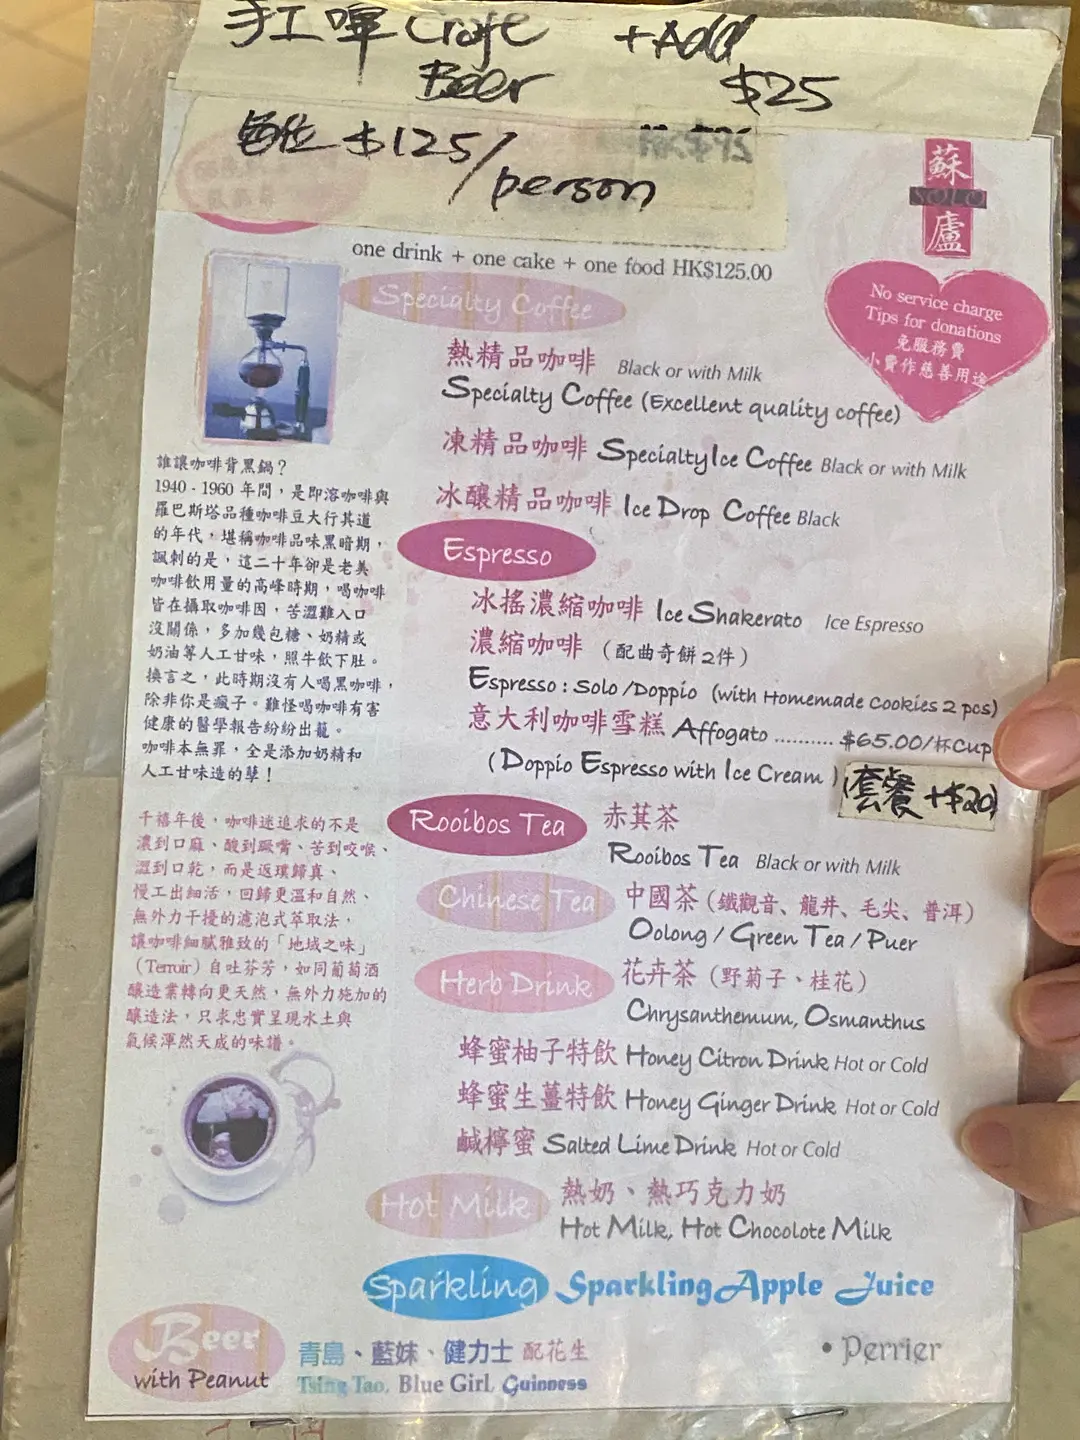 手工啤 Craft +Add
Beer $25
每位 $125/person
蘇
SOLO
盧
one drink + one cake + one food HK$125.00
No service charge
Tips for donations
免服務費
小費作慈善用途
Specialty Coffee
熱精品咖啡 Black or with Milk
Specialty Coffee (Excellent quality coffee)
凍精品咖啡 Specialty Ice Coffee Black or with Milk
冰釀精品咖啡 Ice Drop Coffee Black
Espresso
冰搖濃縮咖啡 Ice Shakerato Ice Espresso
濃縮咖啡 (配曲奇餅2件)
Espresso : Solo /Doppio (with Homemade cookies 2 pcs)
意大利咖啡雪糕 Affogato .......... $65.00/杯cup
(Doppio Espresso with Ice Cream)
(套餐 +$20)
Rooibos Tea 赤萁茶
Rooibos Tea Black or with Milk
Chinese Tea 中國茶 (鐵觀音、龍井、毛尖、普洱)
Oolong / Green Tea / Puer
Herb Drink 花卉茶 (野菊子、桂花)
Chrysanthemum, Osmanthus
蜂蜜柚子特飲 Honey Citron Drink Hot or Cold
蜂蜜生薑特飲 Honey Ginger Drink Hot or Cold
鹹檸蜜 Salted Lime Drink Hot or Cold
Hot Milk 熱奶、熱巧克力奶
Hot Milk, Hot Chocolate Milk
Sparkling Sparkling Apple Juice
• Perrier
Beer
with Peanut
青島、藍妹、健力士 配花生
Tsing Tao, Blue Girl, Guinness
誰讓咖啡背黑鍋？
1940 - 1960 年間，是即溶咖啡與
羅巴斯塔品種咖啡豆大行其道
的年代，堪稱咖啡品味黑暗期，
諷刺的是，這二十年卻是老美
咖啡飲用量的高峰時期，喝咖啡
皆在攝取咖啡因，苦澀難入口
沒關係，多加幾包糖、奶精或
奶油等人工甘味，照牛飲下肚。
換言之，此時期沒有人喝黑咖啡，
除非你是瘋子。難怪喝咖啡有害
健康的醫學報告紛紛出籠。
咖啡本無罪，全是添加奶精和
人工甘味造的孽！
千禧年後，咖啡迷追求的不是
濃到口麻、酸到蹶嘴、苦到咬喉、
澀到口乾，而是返璞歸真、
慢工出細活，回歸更溫和自然、
無外力干擾的濾泡式萃取法，
讓咖啡細膩雅致的「地域之味」
（Terroir）自吐芬芳，如同葡萄酒
釀造業轉向更天然，無外力施加的
釀造法，只求忠實呈現水土與
氣候渾然天成的味譜。